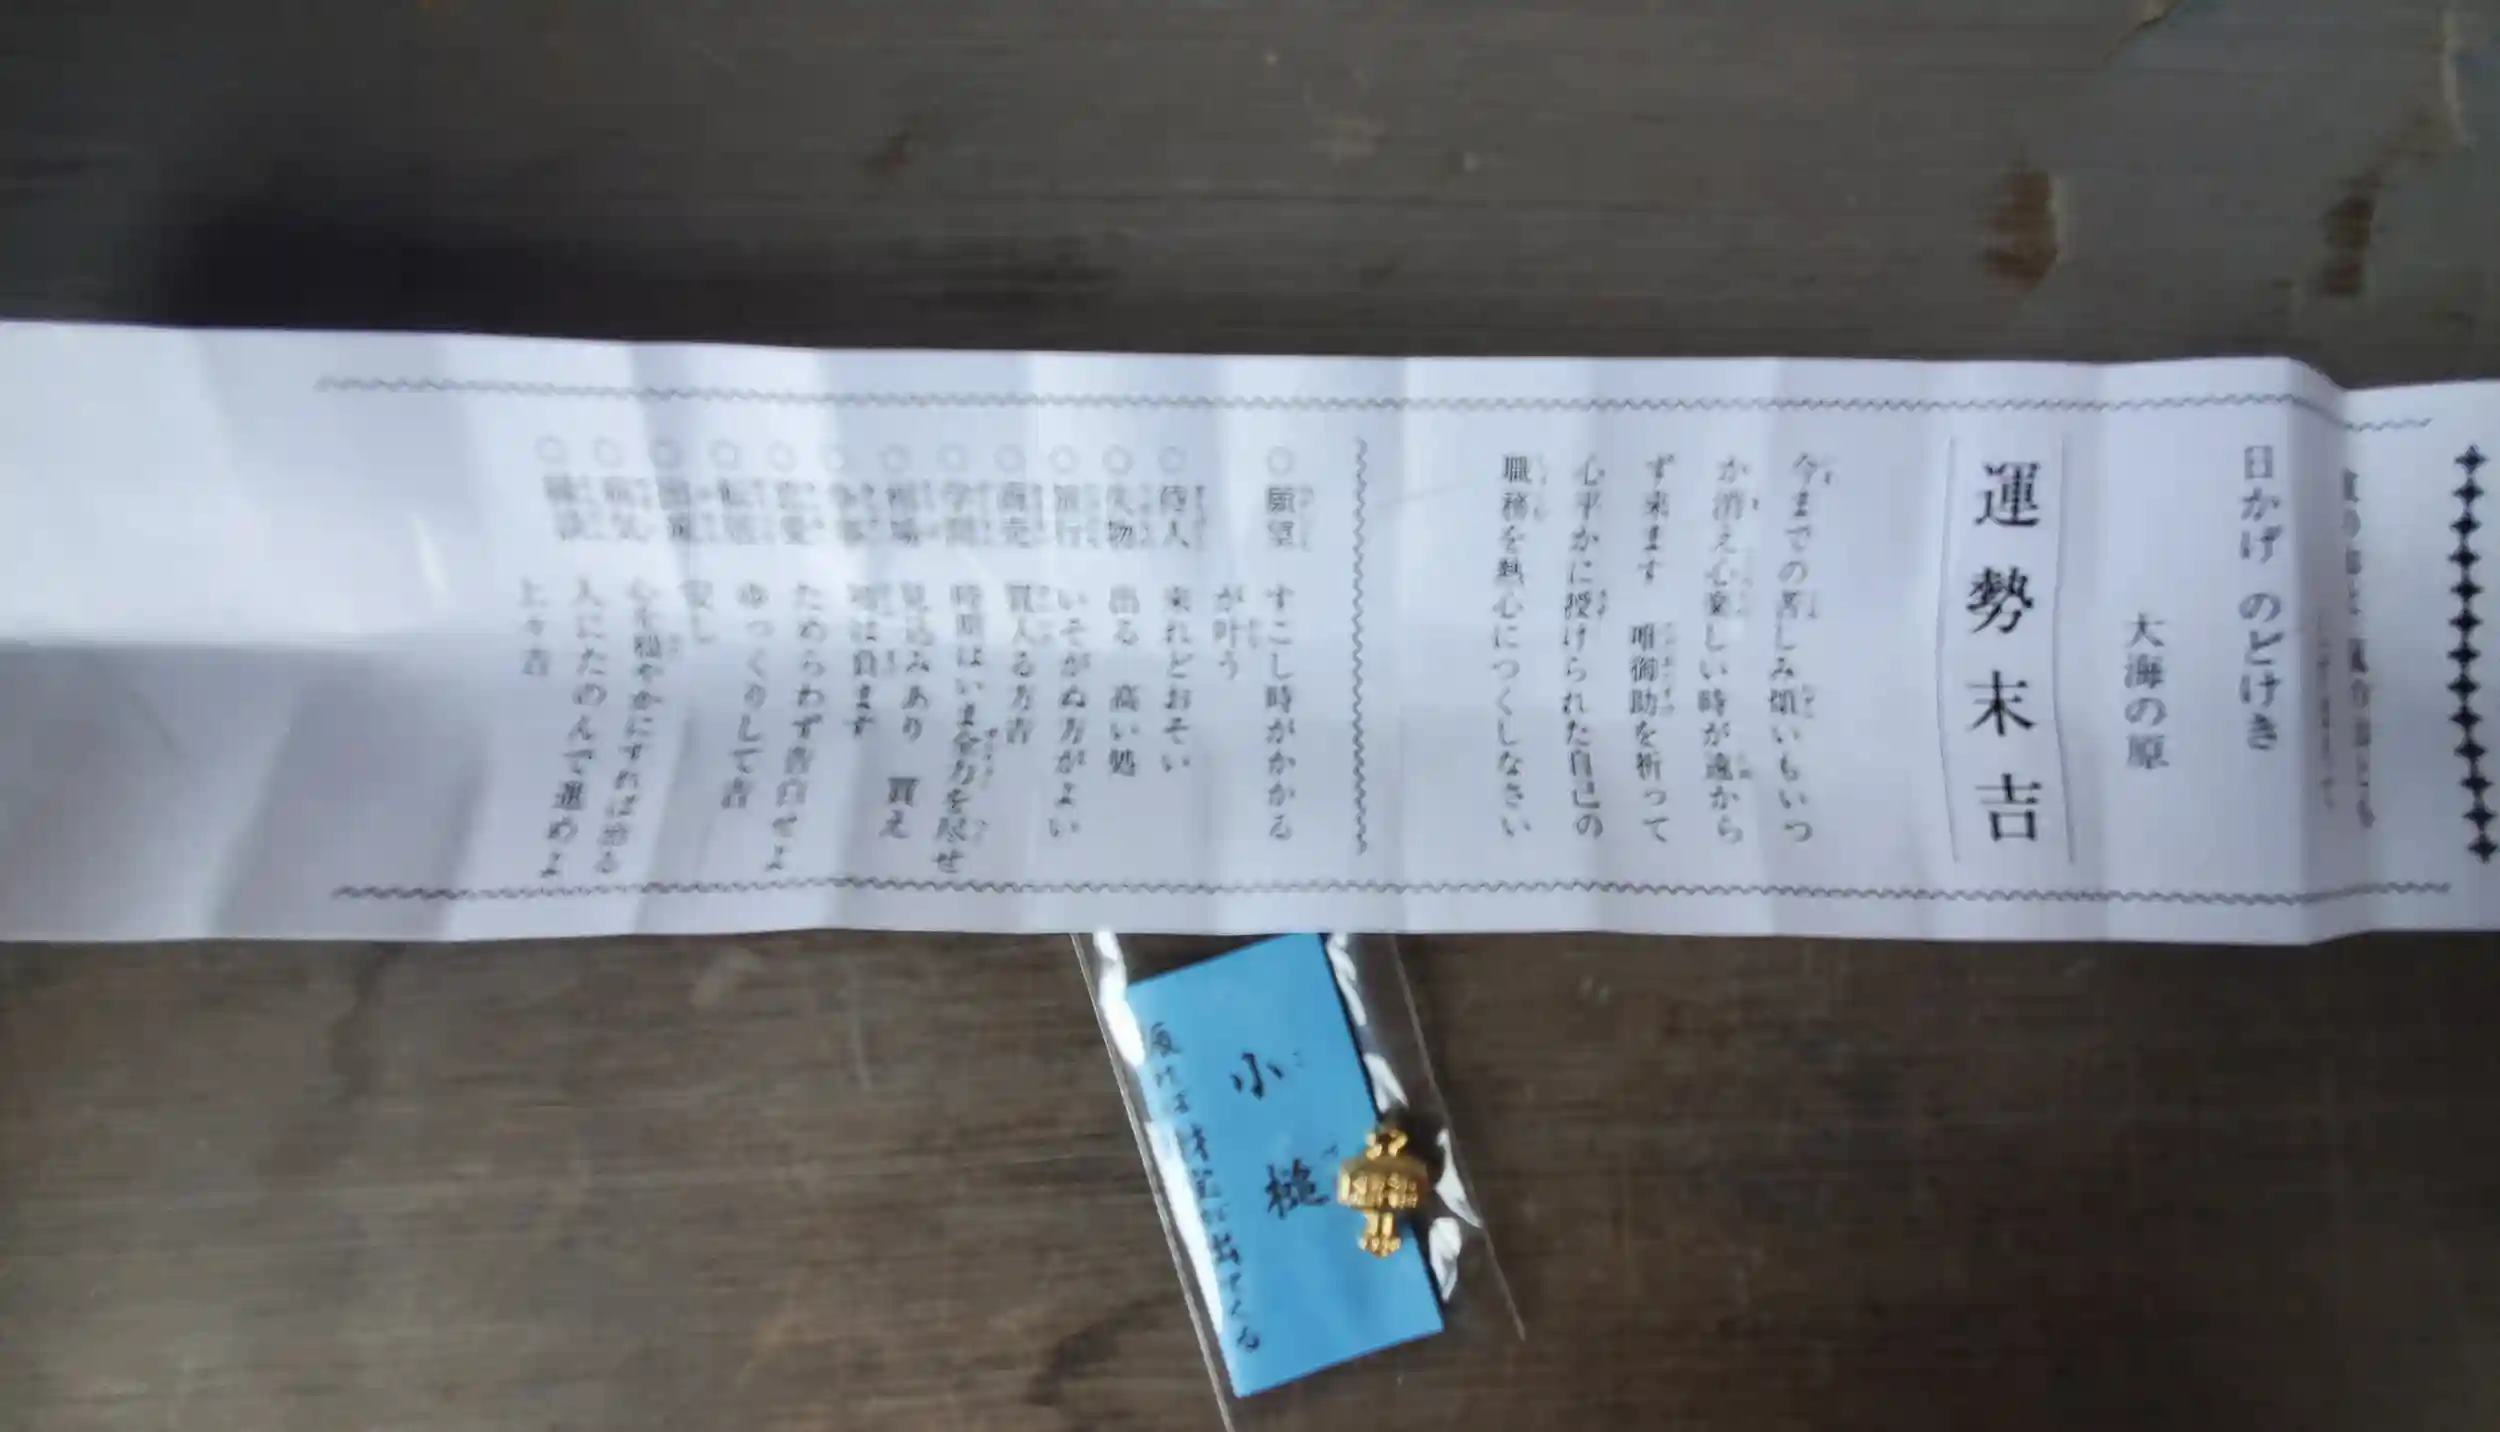 日かげ のどけき
大海の原
運勢末吉
今までの苦しみ煩いもいつ
か消え心楽しい時が遠から
ず来ます 唯御助を祈って
心平かに授けられた自己の
職務を熱心につくしなさい
○願望 すこし時がかかる
が叶う
○待人 来れどおそい
○失物 出る 高い処
○旅行 いそがぬ方がよい
○商売 買入る方吉
○学問 時期はいま全力を尽せ
○相場 見込みあり 買え
○争事 は負ます
○恋愛 ためらわず告白せよ
○転居 ゆっくりして吉
○出産 安し
○病気 心を穏やかにすれば治る
○縁談 人にたのんで進めよ
上々吉
小槌
振れば 宝が出てくる